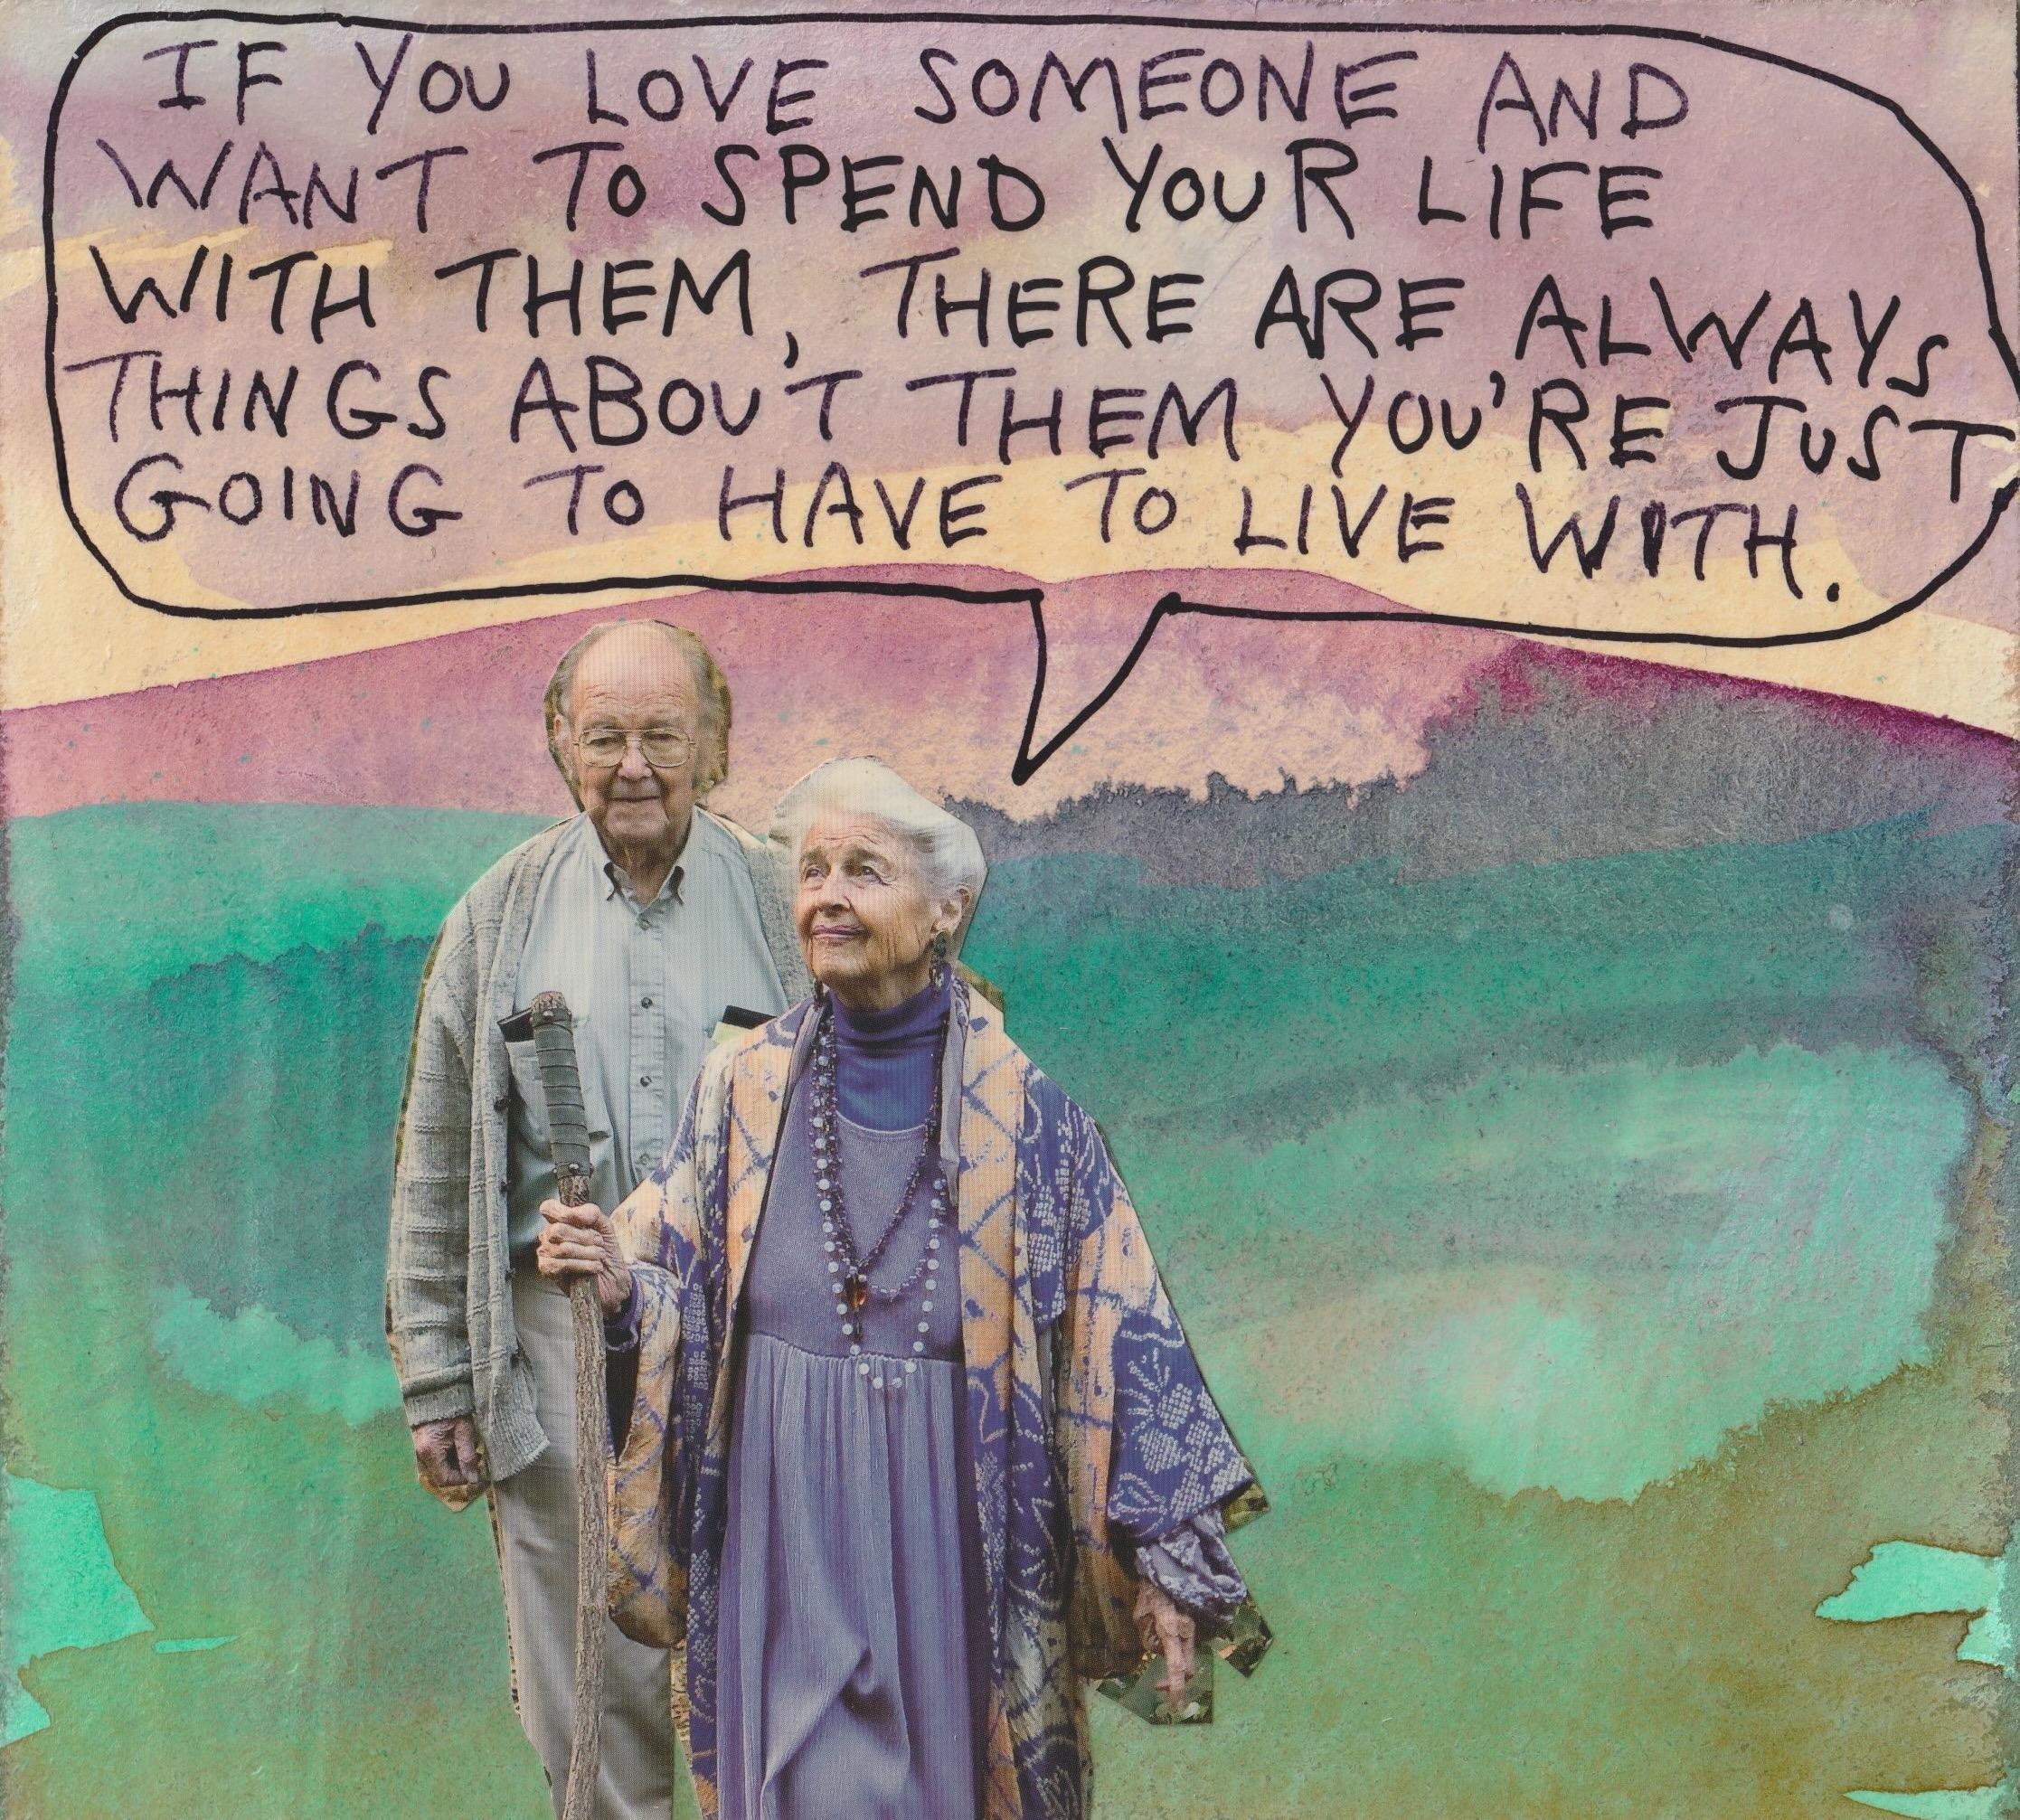 IF YOU LOVE SOMEONE AND
WANT TO SPEND YOUR LIFE
WITH THEM, THERE ARE ALWAYS
THINGS ABOUT THEM YOU'RE JUST
GOING TO HAVE TO LIVE WITH.